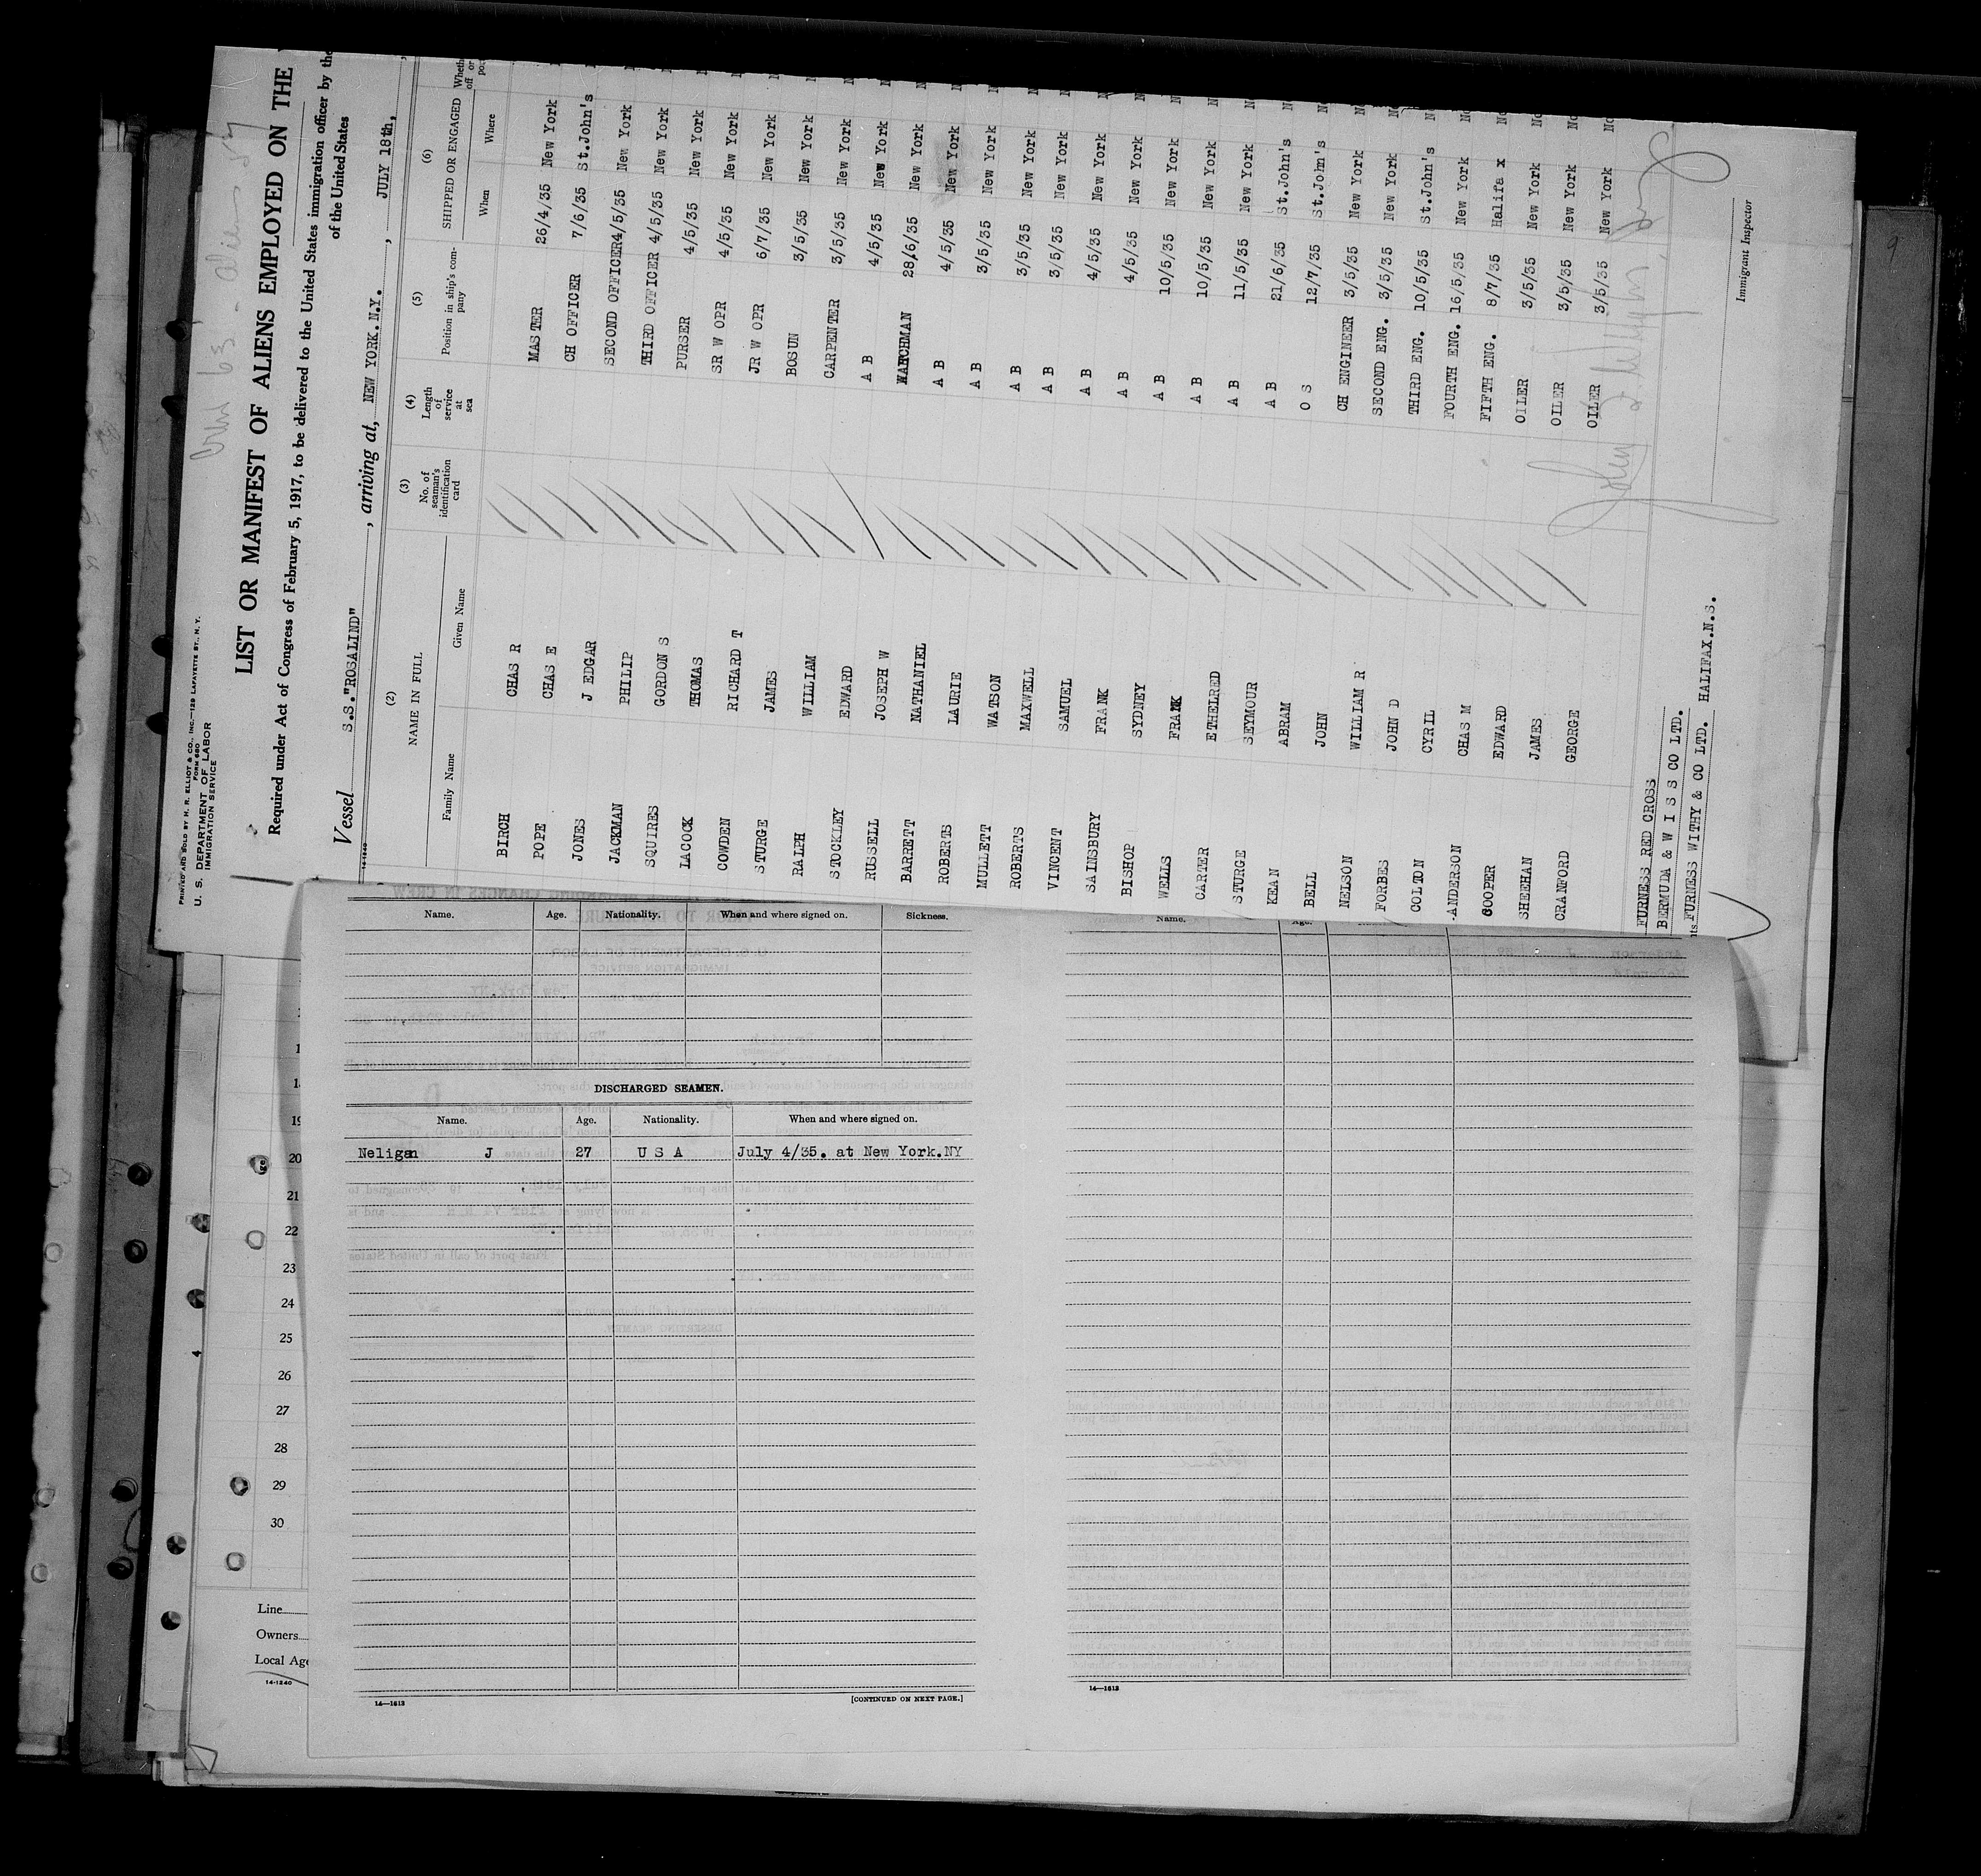 PRINTED AND SOLD BY H. R. ELLIOT & CO., INC.—129 LAFAYETTE ST., N. Y.
FORM 680
U. S. DEPARTMENT OF LABOR
IMMIGRATION SERVICE
LIST OR MANIFEST OF ALIENS EMPLOYED ON THE
Required under Act of Congress of February 5, 1917, to be delivered to the United States immigration officer by the
of the United States
Vessel S.S."ROSALIND", arriving at, NEW YORK. N.Y., JULY 18th,
14-1240
(2) (3) (4) (5) (6)
NAME IN FULL No. of seaman's identification card Length of service at sea Position in ship's company SHIPPED OR ENGAGED
Family Name Given Name When Where
BIRCH CHAS R MASTER 26/4/35 New York
POPE CHAS E CH OFFICER 7/6/35 St.John's
JONES J EDGAR SECOND OFFICER 4/5/35 New York
JACKMAN PHILIP THIRD OFFICER 4/5/35 New York
SQUIRES GORDON S PURSER 4/5/35 New York
LACOCK THOMAS SR W OPR 4/5/35 New York
COWDEN RICHARD T JR W OPR 6/7/35 New York
STURGE JAMES BOSUN 3/5/35 New York
RALPH WILLIAM CARPENTER 3/5/35 New York
STOCKLEY EDWARD A B 4/5/35 New York
RUSSELL JOSEPH W WATCHMAN 28/6/35 New York
BARRETT NATHANIEL A B 4/5/35 New York
ROBERTS LAURIE A B 3/5/35 New York
MULLETT WATSON A B 3/5/35 New York
ROBERTS MAXWELL A B 3/5/35 New York
VINCENT SAMUEL A B 4/5/35 New York
SAINSBURY FRANK A B 4/5/35 New York
BISHOP SYDNEY A B 10/5/35 New York
WELLS FRANK A B 10/5/35 New York
CARTER ETHELRED A B 11/5/35 New York
STURGE SEYMOUR A B 21/6/35 St.John's
KEAN ABRAM O S 12/7/35 St.John's
BELL JOHN CH ENGINEER 3/5/35 New York
NELSON WILLIAM R SECOND ENG. 3/5/35 New York
FORBES JOHN D THIRD ENG. 10/5/35 St.John's
COLTON CYRIL FOURTH ENG. 16/5/35 New York
ANDERSON CHAS M FIFTH ENG. 8/7/35 Halifax
COOPER EDWARD OILER 3/5/35 New York
SHEEHAN JAMES OILER 3/5/35 New York
CRANFORD GEORGE OILER 3/5/35 New York
FURNESS RED CROSS
BERMUDA & W I S S CO LTD.
FURNESS WITHY & CO LTD. HALIFAX.N.S.
Immigrant Inspector
Name. Age. Nationality. When and where signed on. Sickness.
DISCHARGED SEAMEN.
Name. Age. Nationality. When and where signed on.
Neligan J 27 U S A July 4/35. at New York.NY
14—1613
[CONTINUED ON NEXT PAGE.]
Name. Age.
14—1613
19
20
21
22
23
24
25
26
27
28
29
30
Line
Owners
Local Age
14-1240